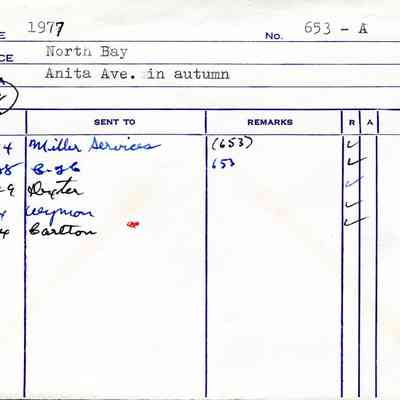 E 1977 No. 653 - A
CE North Bay
Anita Ave. in autumn
SENT TO REMARKS R A
4 Miller Services (653) ✓
653 ✓
-9 Dexter ✓
Weymon ✓
Carlton ✓